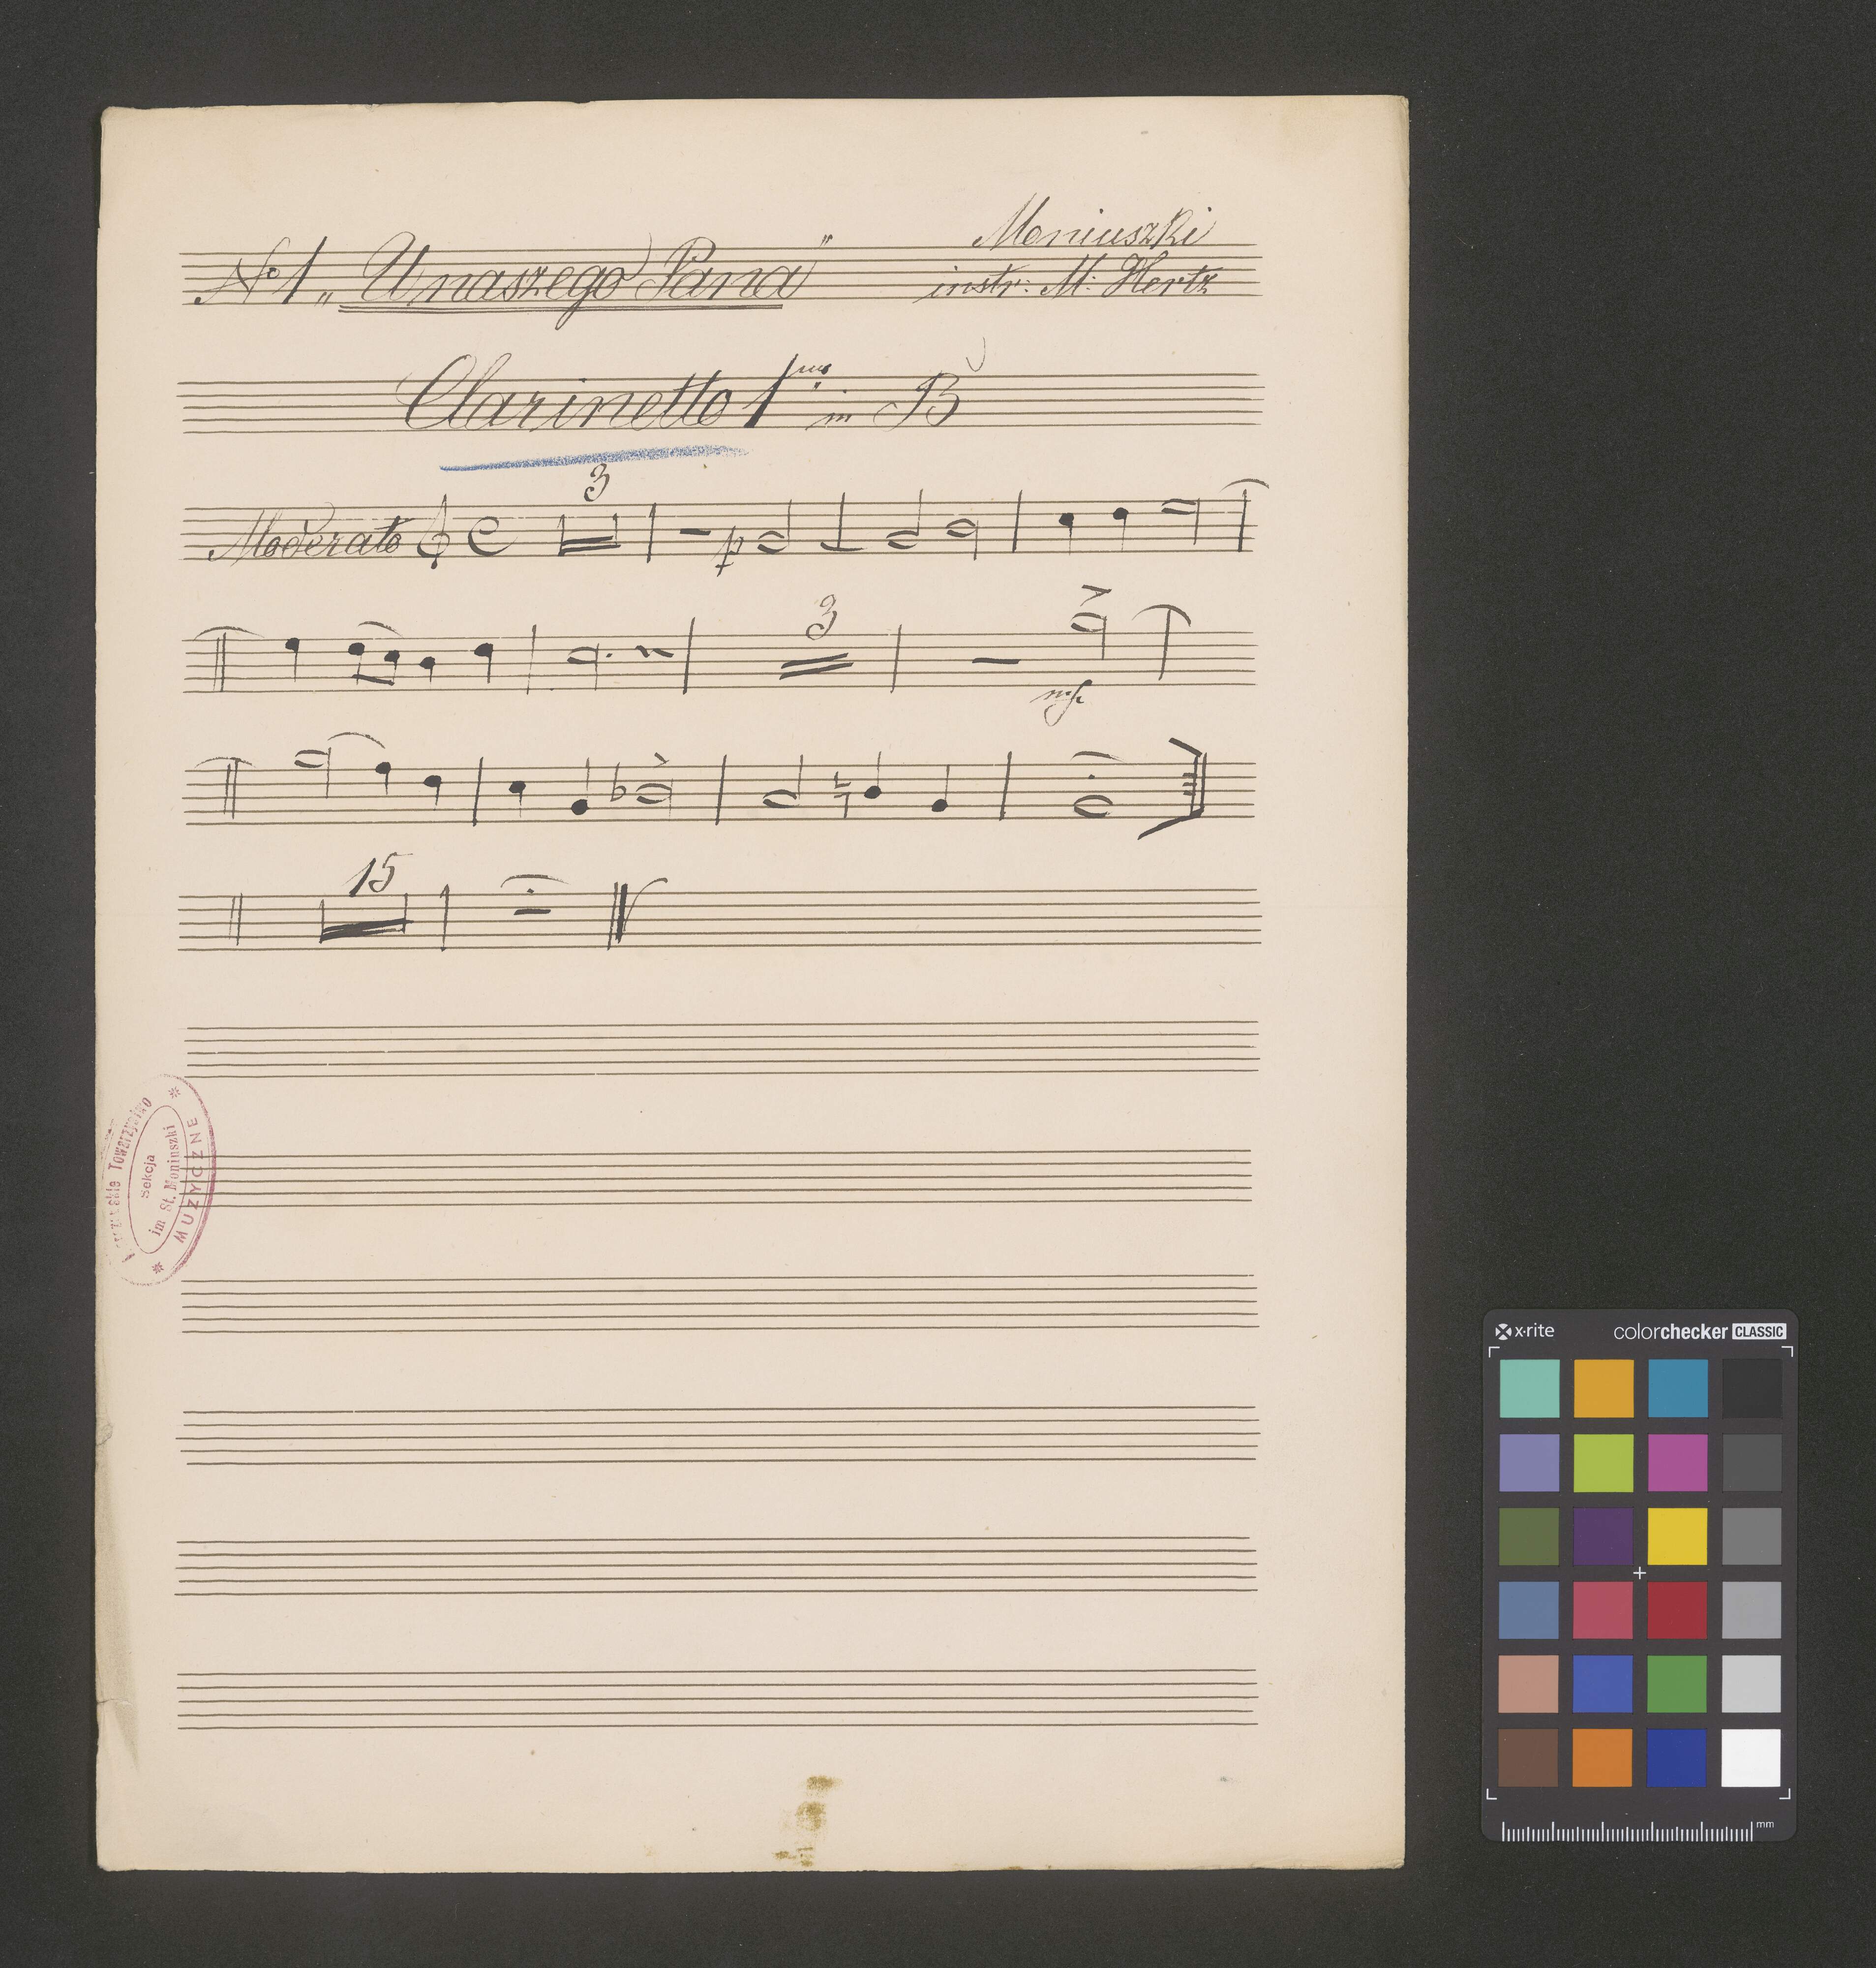 Moniuszki
No 1 „Unaszego Pana" instr: M: Hertz
Clarinetto 1mo in B
3
Moderato C p
3
mf.
15
Towarzystwo
Sekcja
im St. Moniuszki
MUZYCZNE
x·rite colorchecker CLASSIC
mm